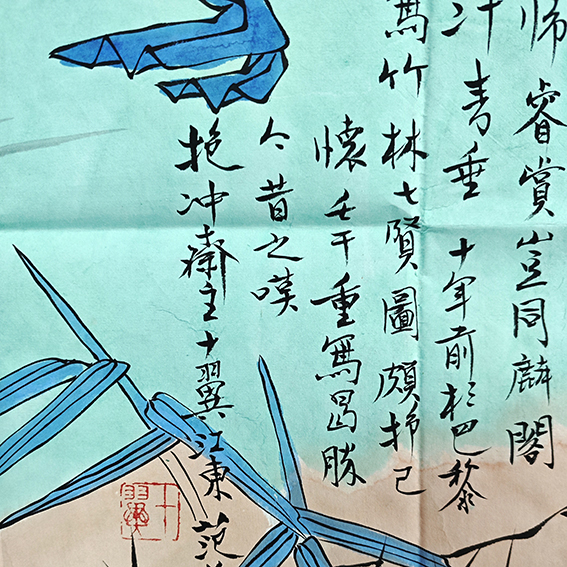 帰睿賞豈同麟閣
汗青垂 十年前於巴黎
寫竹林七賢圖頗抒己
懷壬午重寫曷勝
今昔之嘆
抱冲齋主十翼江東范
十翼